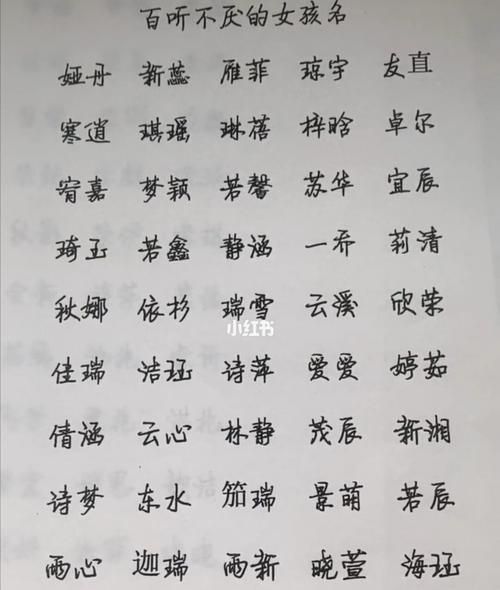 百听不厌的女孩名
娅丹 新蕊 雁菲 琼宇 友直
寒逍 琪瑶 琳蓓 梓晗 卓尔
宥嘉 梦颖 若馨 苏华 宜辰
琦玉 若鑫 静涵 一乔 莉清
秋娜 依杉 瑞雪 云溪 欣荣
小红书
佳瑞 洁珏 诗萍 爱爱 婷茹
倩涵 云心 林静 茂辰 新湘
诗梦 东水 笳瑞 景萌 若辰
雨心 迦瑞 雨新 晓萱 海珏